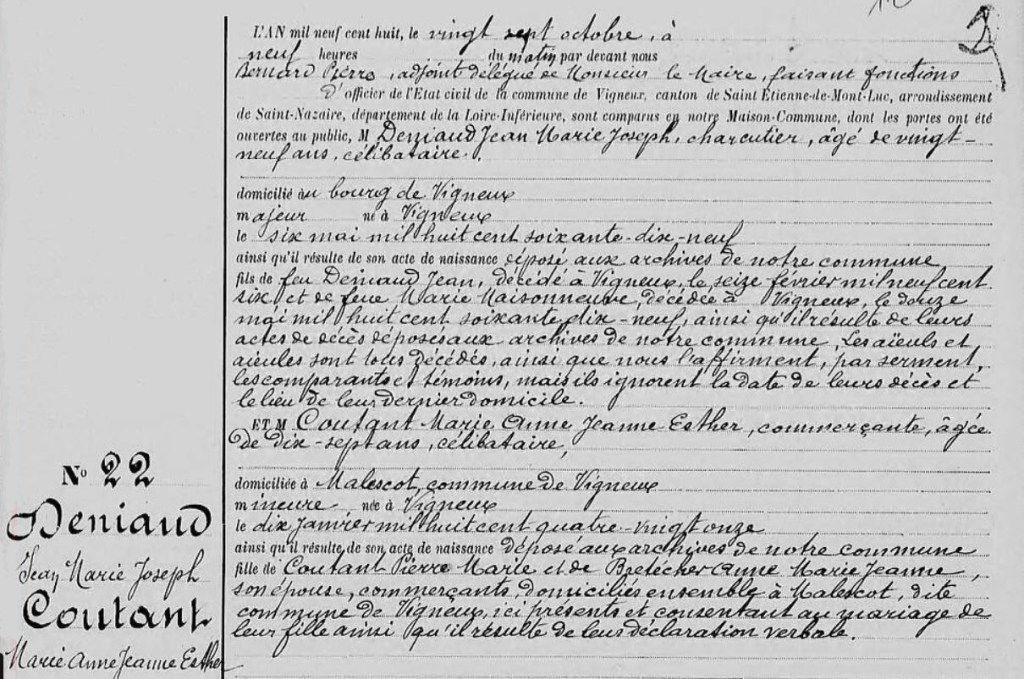 L'AN mil neuf cent huit, le vingt sept octobre, à
neuf heures du matin par devant nous
Bernard Pierre, adjoint délégué de Monsieur le Maire, faisant fonctions
d'officier de l'Etat civil de la commune de Vigneux, canton de Saint Etienne-de-Mont-Luc, arrondissement
de Saint-Nazaire, département de la Loire-Inférieure, sont comparus en notre Maison-Commune, dont les portes ont été
ouvertes au public, M Deniaud Jean Marie Joseph, charcutier, âgé de vingt-
neuf ans, célibataire,
domicilié au bourg de Vigneux
majeur né à Vigneux
le six mai mil huit cent soixante-dix-neuf
ainsi qu'il résulte de son acte de naissance déposé aux archives de notre commune,
fils de feu Deniaud Jean, décédé à Vigneux, le seize février mil neuf cent
six et de feue Marie Maisonneuve, décédée à Vigneux, le douze
mai mil huit cent soixante dix-neuf, ainsi qu'il résulte de leurs
actes de décès déposés aux archives de notre commune, Les aïeuls et
aïeules sont tous décédés, ainsi que nous l'affirment, par serment,
les comparants et témoins, mais ils ignorent la date de leurs décès et
le lieu de leur dernier domicile.
ET M Coutant Marie Anne Jeanne Esther, commerçante, âgée
de dix-sept ans, célibataire,
domiciliée à Malescot, commune de Vigneux
mineure née à Vigneux
le dix Janvier mil huit cent quatre-vingt onze
ainsi qu'il résulte de son acte de naissance déposé aux archives de notre commune
fille de Coutant Pierre Marie et de Bretécher Anne Marie Jeanne,
son épouse, commerçants, domiciliés ensemble à Malescot, dite
commune de Vigneux, ici présents et consentant au mariage de
leur fille ainsi qu'il résulte de leur déclaration verbale.
N° 22
Deniaud
Jean Marie Joseph
Coutant
Marie Anne Jeanne Esther